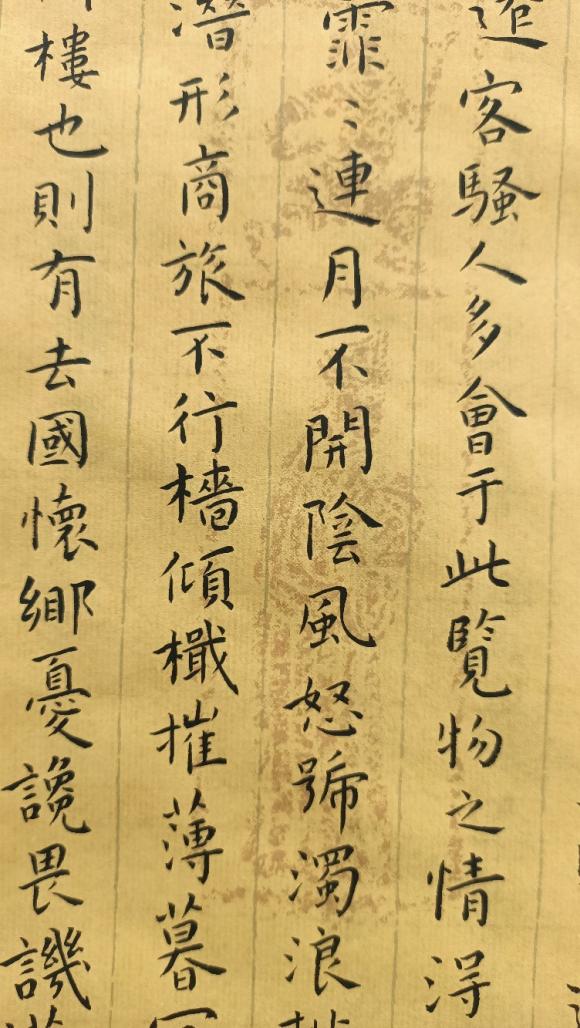 客騷人多會于此覽物之情得
霏〻連月不開陰風怒號濁浪
潛形商旅不行檣傾檝摧薄暮
樓也則有去國懷鄉憂讒畏譏